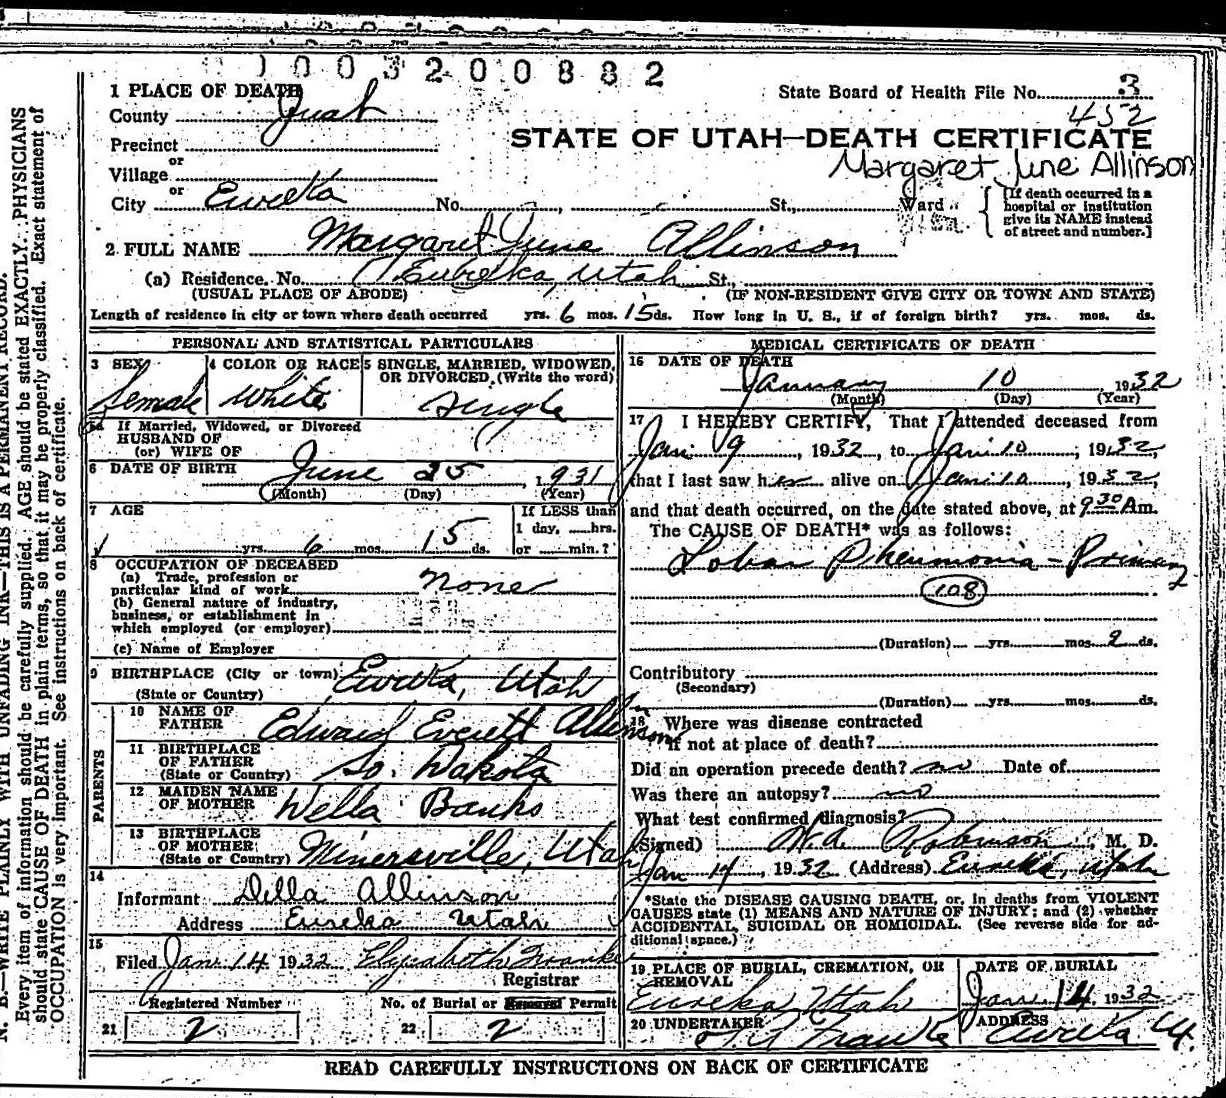 1003200882
1 PLACE OF DEATH
State Board of Health File No. 3
County Juab
452
STATE OF UTAH—DEATH CERTIFICATE
Precinct
or
Margaret June Allinson
Village
or
City Eureka No. , St., Ward
[If death occurred in a hospital or institution give its NAME instead of street and number.]
2 FULL NAME Margaret June Allinson
(a) Residence. No. Eureka, Utah St.,
(USUAL PLACE OF ABODE) (IF NON-RESIDENT GIVE CITY OR TOWN AND STATE)
Length of residence in city or town where death occurred yrs. 6 mos. 15 ds. How long in U. S., if of foreign birth? yrs. mos. ds.
PERSONAL AND STATISTICAL PARTICULARS
3 SEX 4 COLOR OR RACE 5 SINGLE, MARRIED, WIDOWED,
OR DIVORCED (Write the word)
Female White Single
5a If Married, Widowed, or Divorced
HUSBAND OF
(or) WIFE OF
6 DATE OF BIRTH June 25, 1931
(Month) (Day) (Year)
7 AGE If LESS than
1 day, hrs.
yrs. 6 mos. 15 ds. or min.?
8 OCCUPATION OF DECEASED
(a) Trade, profession or
particular kind of work none
(b) General nature of industry,
business, or establishment in
which employed (or employer)
(c) Name of Employer
9 BIRTHPLACE (City or town) Eureka, Utah
(State or Country)
PARENTS
10 NAME OF
FATHER Edward Everett Allinson
11 BIRTHPLACE
OF FATHER
(State or Country) So. Dakota
12 MAIDEN NAME
OF MOTHER Della Banks
13 BIRTHPLACE
OF MOTHER
(State or Country) Minersville, Utah
14
Informant Della Allinson
Address Eureka Utah
15
Filed Jan 14 1932 Elyzabeth Franke
Registrar
Registered Number No. of Burial or Removal Permit
21 2 22 2
MEDICAL CERTIFICATE OF DEATH
16 DATE OF DEATH
January 10, 1932
(Month) (Day) (Year)
17 I HEREBY CERTIFY, That I attended deceased from
Jan 9, 1932, to Jan 10, 1932,
that I last saw her alive on Jan 10, 1932,
and that death occurred, on the date stated above, at 9 30 Am.
The CAUSE OF DEATH* was as follows:
Lobar Pneumonia - Primary
108
(Duration) yrs. mos. 2 ds.
Contributory
(Secondary)
(Duration) yrs. mos. ds.
18 Where was disease contracted
if not at place of death?
Did an operation precede death? no Date of
Was there an autopsy? no
What test confirmed diagnosis?
(Signed) W.A. Robinson, M. D.
Jan 14, 1932 (Address) Eureka, Utah
*State the DISEASE CAUSING DEATH, or, in deaths from VIOLENT
CAUSES state (1) MEANS AND NATURE OF INJURY; and (2) whether
ACCIDENTAL, SUICIDAL OR HOMICIDAL. (See reverse side for ad-
ditional space.)
19 PLACE OF BURIAL, CREMATION, OR
REMOVAL
Eureka Utah
DATE OF BURIAL
Jan. 14, 1932
20 UNDERTAKER Franke
ADDRESS Eureka Ut.
READ CAREFULLY INSTRUCTIONS ON BACK OF CERTIFICATE
N. B.—WRITE PLAINLY WITH UNFADING INK—THIS IS A PERMANENT RECORD.
Every item of information should be carefully supplied. AGE should be stated EXACTLY. PHYSICIANS
should state CAUSE OF DEATH in plain terms, so that it may be properly classified. Exact statement of
OCCUPATION is very important. See instructions on back of certificate.